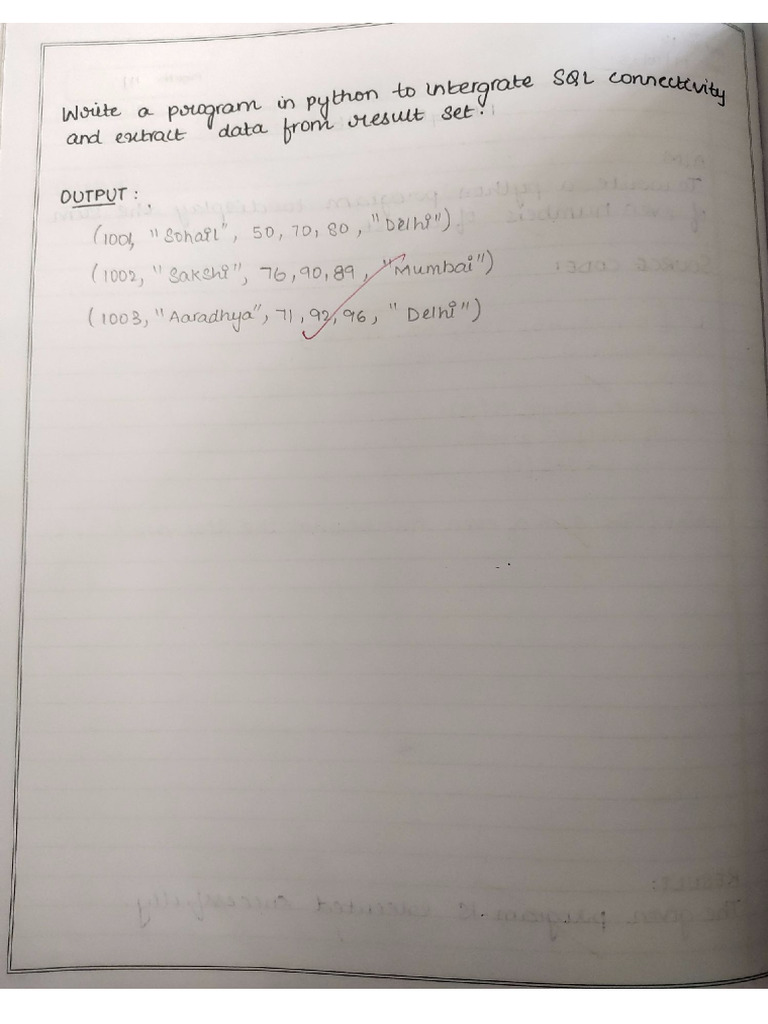 Write a program in python to intergrate SQL connectivity
and extract data from result set.
OUTPUT :
(1001, "Sohail", 50, 70, 80, "Delhi")
(1002, "Sakshi", 76, 90, 89, "Mumbai")
(1003, "Aaradhya", 71, 92, 96, "Delhi")